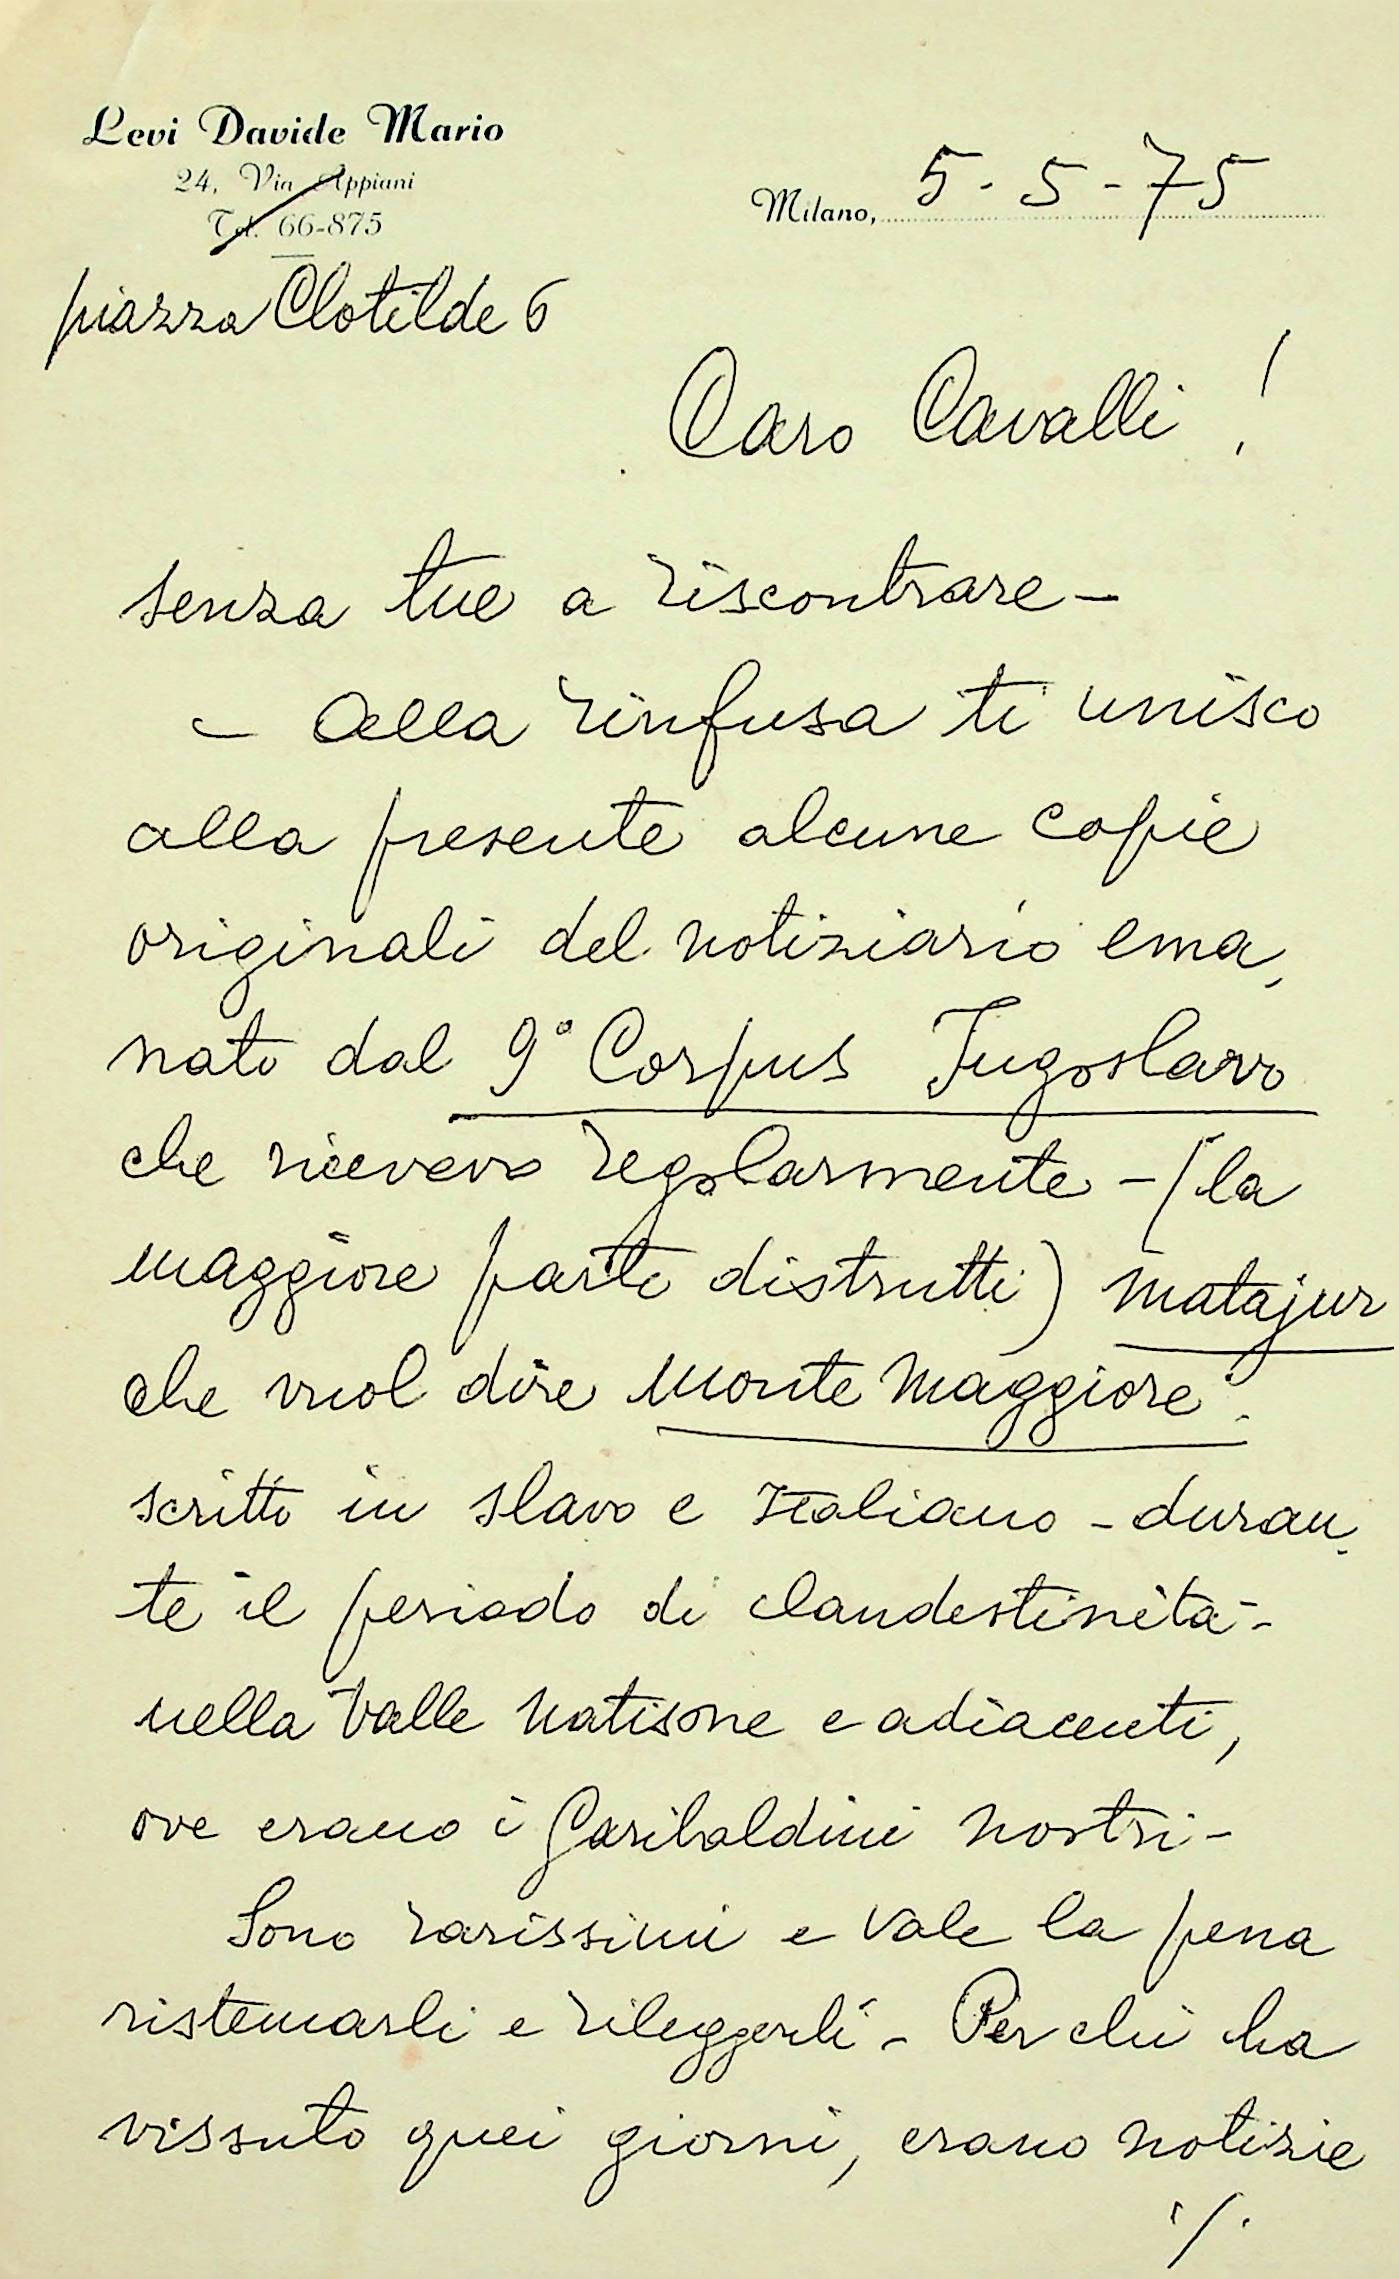 Levi Davide Mario
24, Via Appiani
Tel. 66-875
Milano, 5-5-75
piazza Clotilde 6
Caro Cavalli!
senza tue a riscontrare -
- alla rinfusa ti unisco
alla presente alcune copie
originali del notiziario ema-
nato dal 9° Corpus Jugoslavo
che ricevevo regolarmente - (la
maggiore parte distrutti) Matajur
che vuol dire Monte Maggiore:
scritto in slavo e Italiano - duran-
te il periodo di clandestinità -
nella Valle Natisone e adiacenti,
ove erano i Garibaldini nostri -
Sono rarissimi e vale la pena
risternarli e rileggerli - Per chi ha
vissuto quei giorni, erano notizie
./.